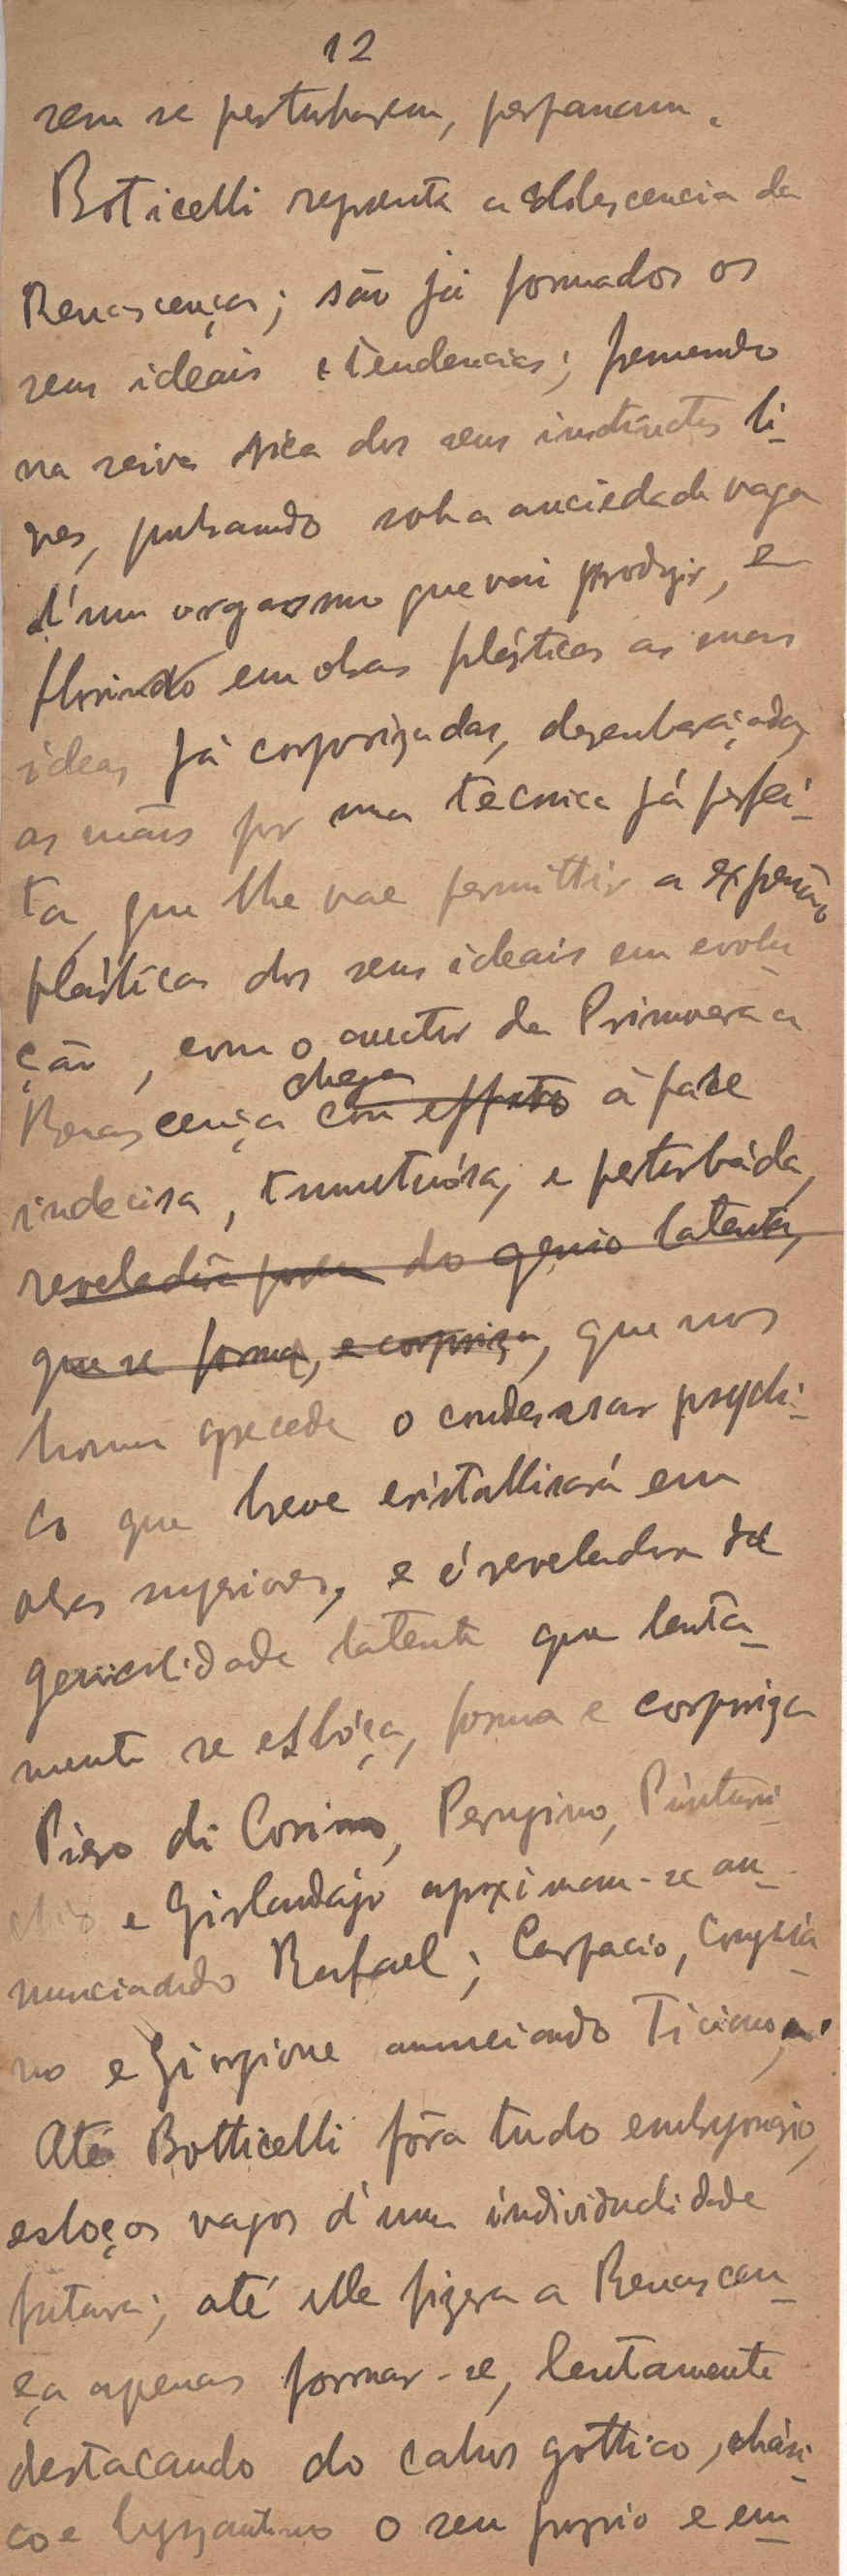 12
sem se perturbarem, perpassam.
Boticelli representa a adolescencia da
Renascença; são já formados os
seus ideais e tendencias; fremendo
na seiva rica dos seus instinctos li-
vres, pulsando sob a anciedade vaga
d'um orgasmo que vai produzir, e
florindo em obras plásticas as suas
ideas já corporizadas, desembaraçadas
as mãos por uma tecnica já perfei-
ta, que lhe vae permittir a expansão
plásticas dos seus ideais em evolu
ção, com o auctor da Primavera a
Renascença chega com effeito á fase
indecisa, tumultuósa, e perturbáda,
reveladôra do genio latente,
que se forma, e corporiza, que nos
homens precede o condensar psychi-
co que breve cristallisará em
obras superiores, e é reveladora da
genialidade latente que lenta-
mente se esbóça, forma e corporiza
Piero di Cosimo, Perugino, Pinturi-
chio e Girlandájo aproximam-se an-
nunciando Rafael; Carpacio, Conegliá-
no e Giorgione annunciando Ticiano,
Até Botticelli fôra tudo embryonário,
esboços vagos d'uma individualidade
futura; até elle fizera a Renascen-
ça apenas formar-se, lentamente
destacando do cahos gottico, clássi-
co e byzantino o seu proprio e em-